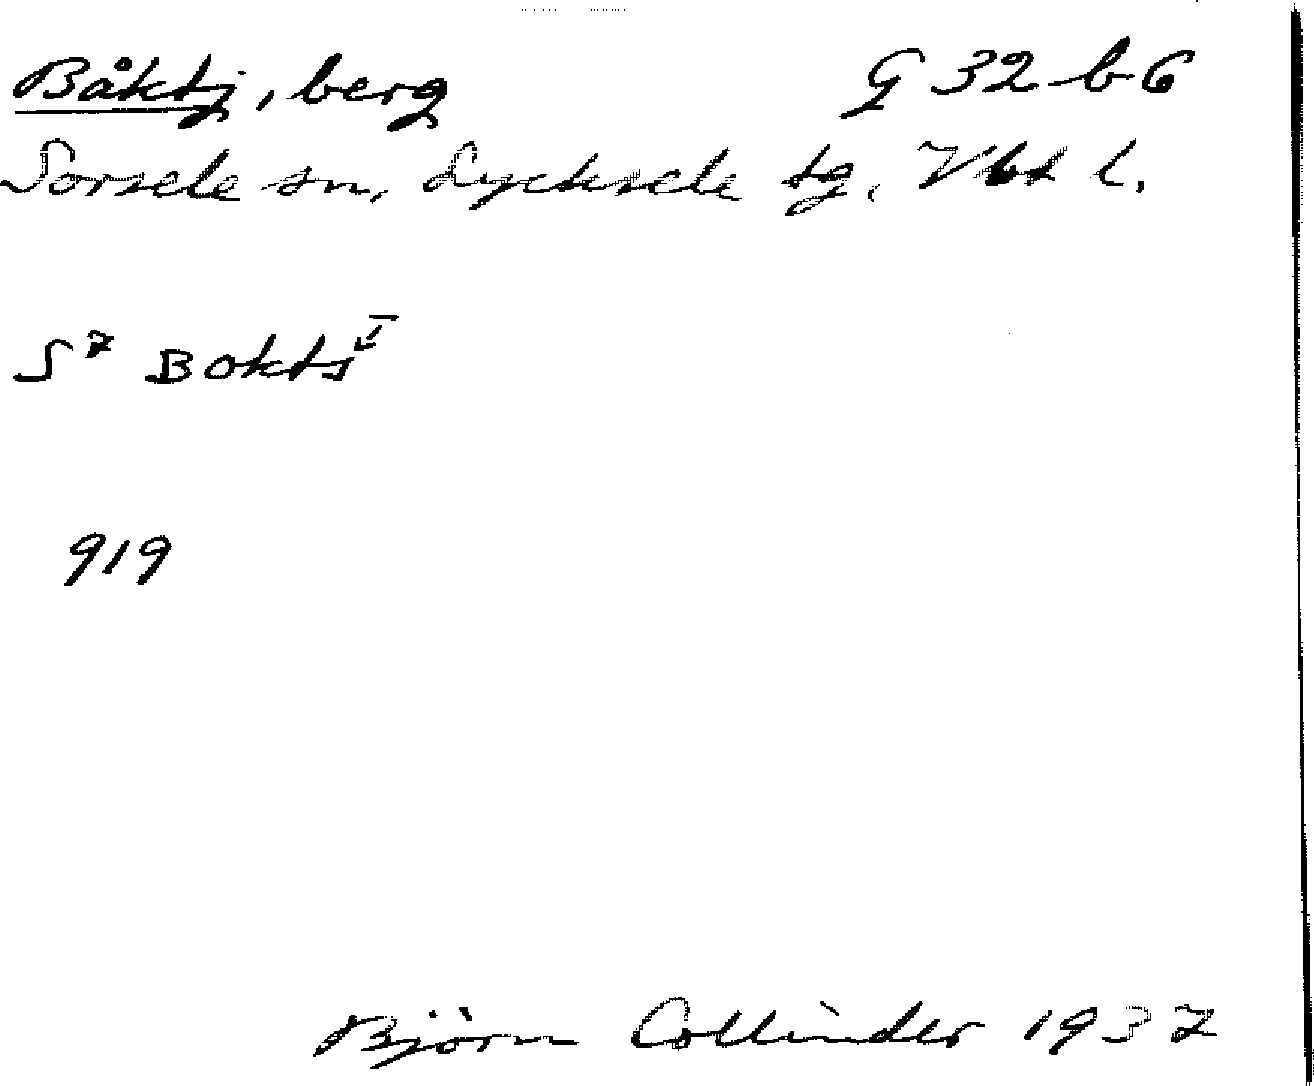 Båktj, berg G 32 b 6
Sorsele sn, Lycksele tg, Vbt l.
S 7 Bokts
919
Björn Collinder 1937